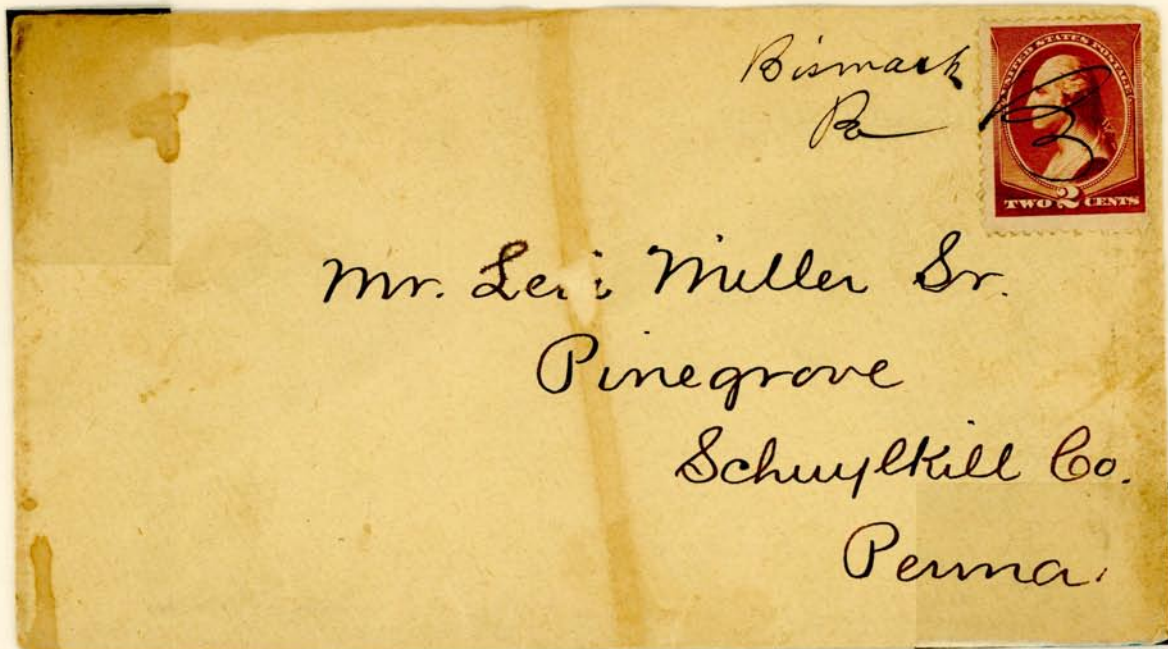 Bismark
Pa
UNITED STATES POSTAGE
TWO 2 CENTS
Mr. Levi Miller Sr.
Pinegrove
Schuylkill Co.
Penna.